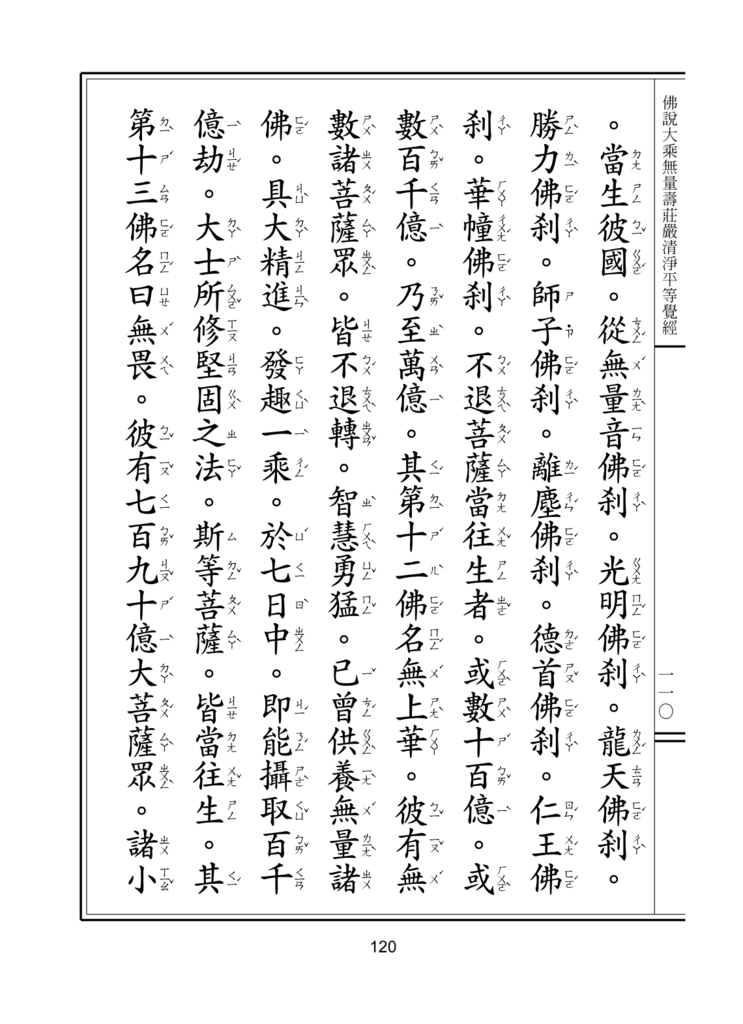 佛說大乘無量壽莊嚴清淨平等覺經
一一〇
。當生彼國。從無量音佛剎。光明佛剎。龍天佛剎。
勝力佛剎。師子佛剎。離塵佛剎。德首佛剎。仁王佛
剎。華幢佛剎。不退菩薩當往生者。或數十百億。或
數百千億。乃至萬億。其第十二佛名無上華。彼有無
數諸菩薩眾。皆不退轉。智慧勇猛。已曾供養無量諸
佛。具大精進。發趣一乘。於七日中。即能攝取百千
億劫。大士所修堅固之法。斯等菩薩。皆當往生。其
第十三佛名曰無畏。彼有七百九十億大菩薩眾。諸小
120